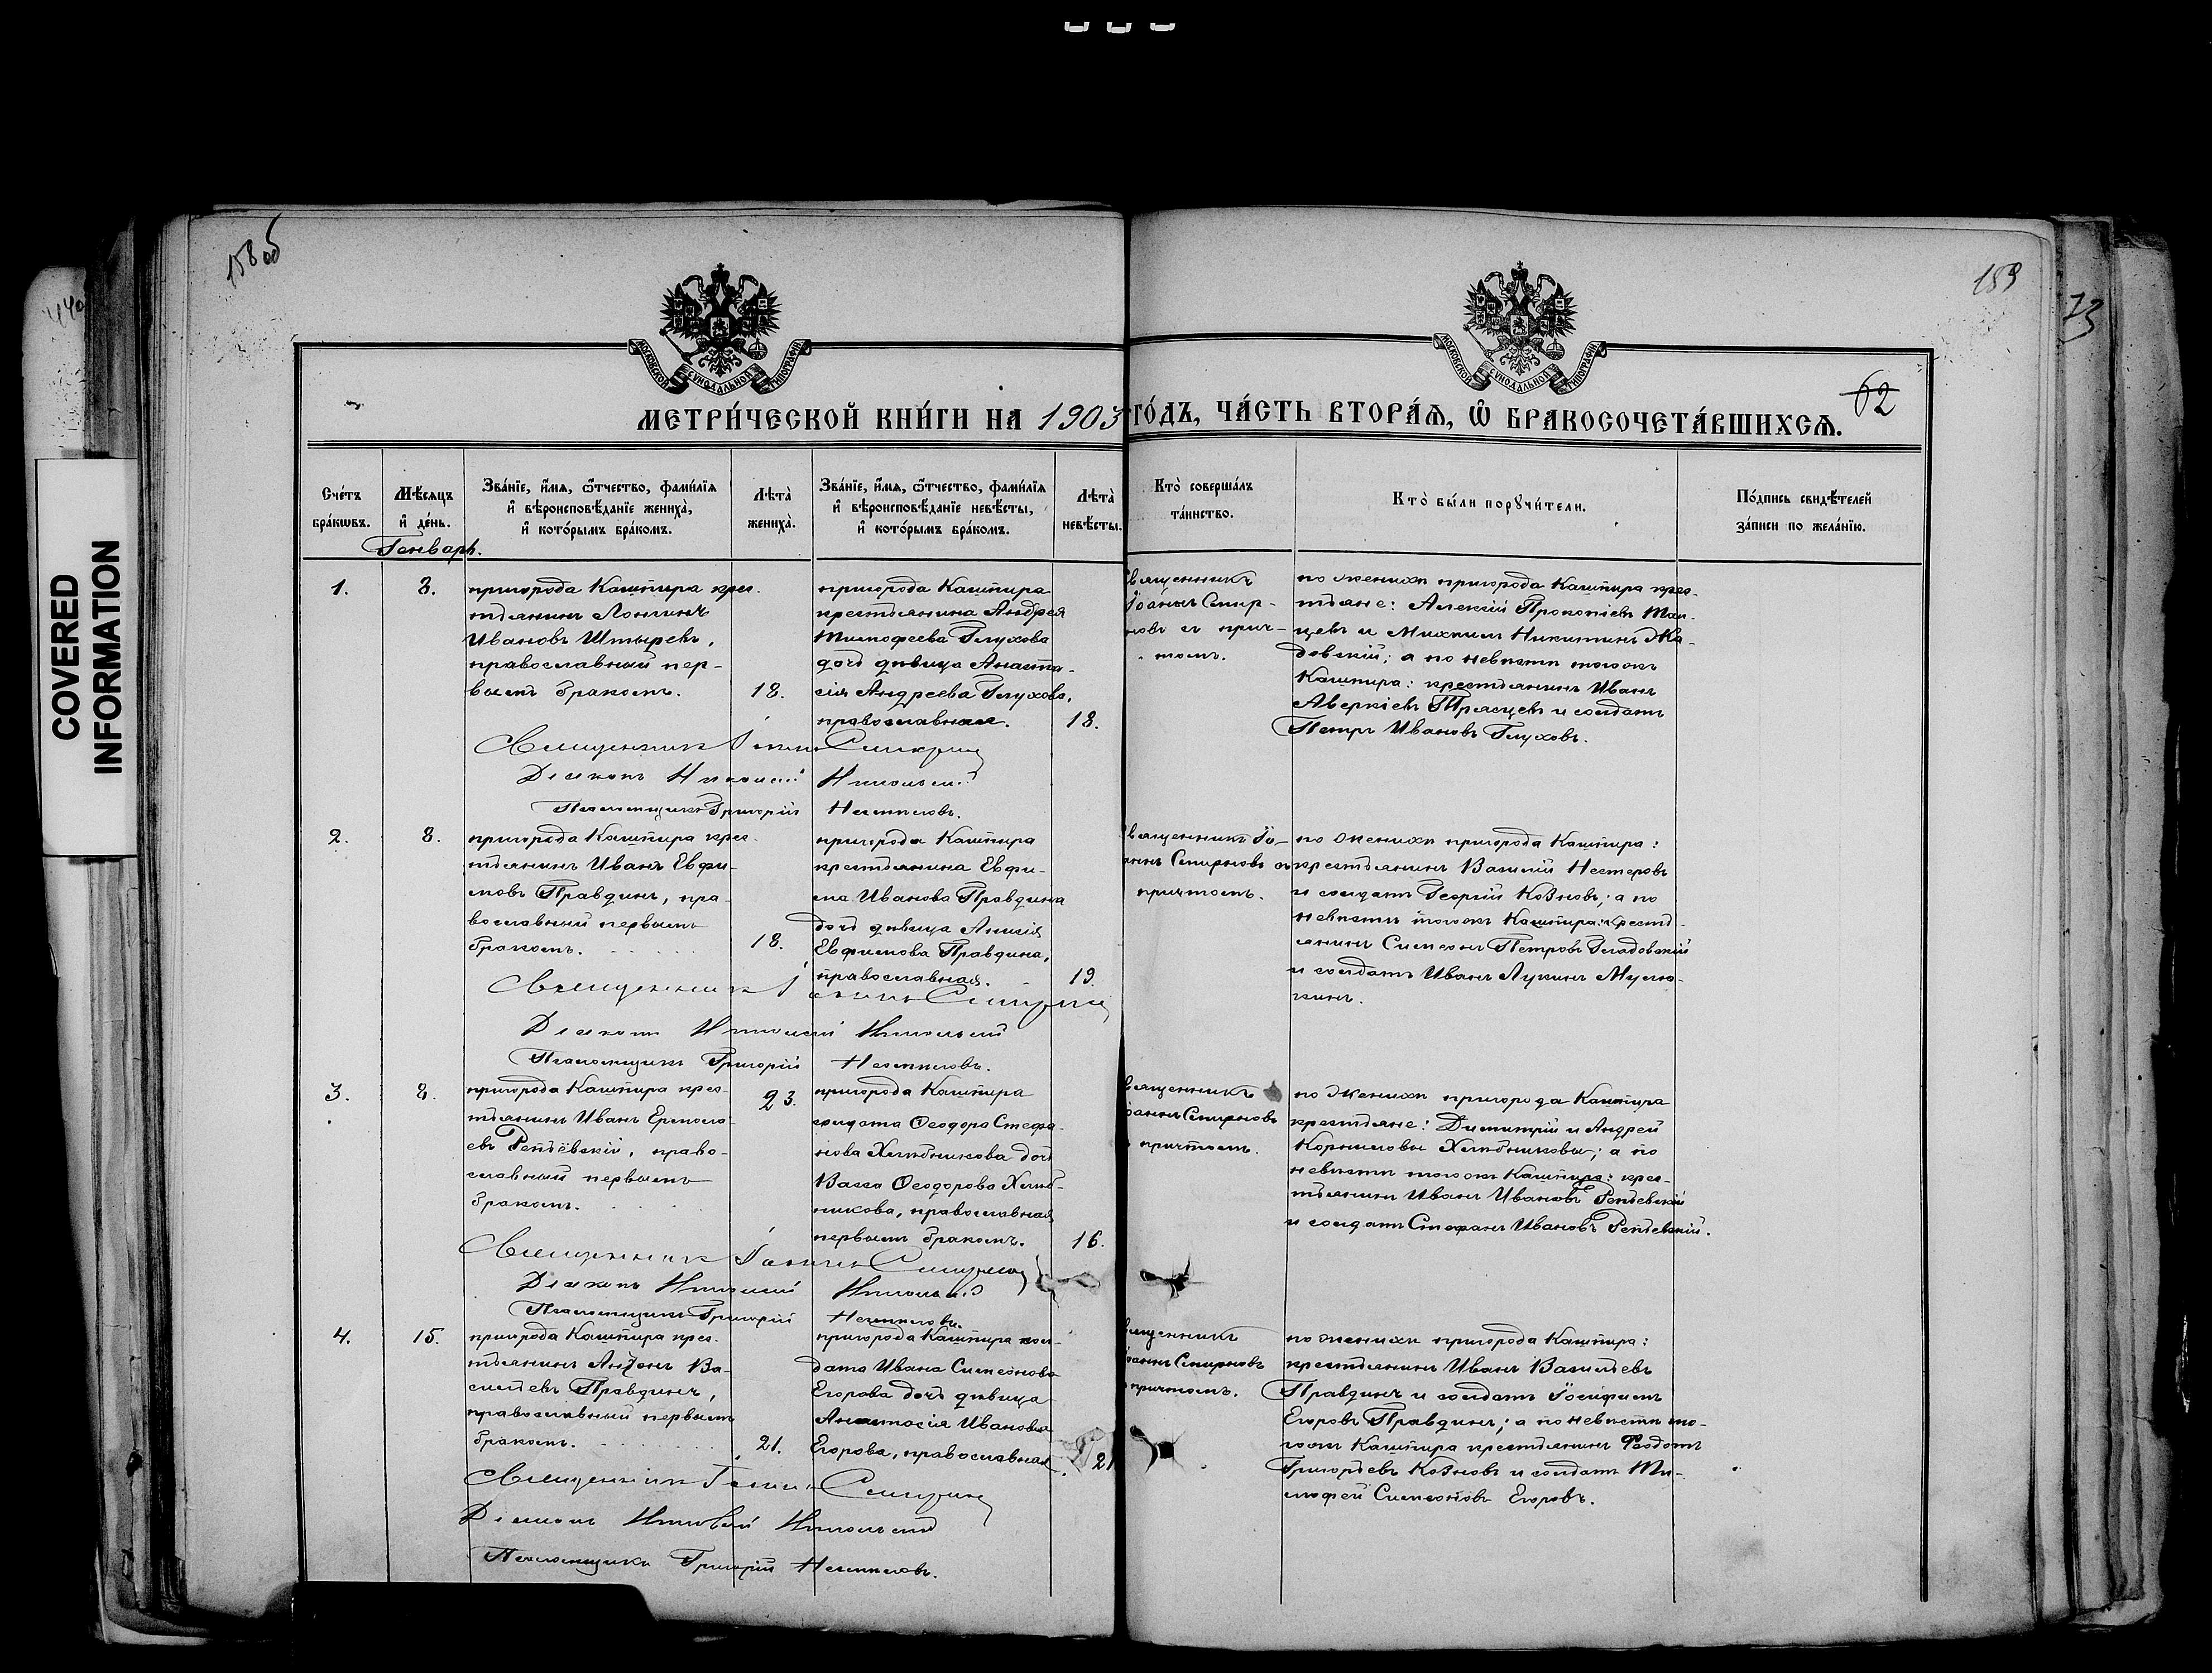 COVERED
INFORMATION
158 об
159
62
МОСКОВСКОЙ СУНОДАЛЬНОЙ ТИПОГРАФІИ
МОСКОВСКОЙ СУНОДАЛЬНОЙ ТИПОГРАФІИ
МЕТРИ́ЧЕСКОЙ КНИ́ГИ НА 1903 ГО́ДЪ, ЧА́СТЬ ВТОРА́Ѧ, Ѽ БРАКОСОЧЕТА́ВШИХСѦ.
Сче́тъ бра́кѡвъ.
Мѣ́сѧцъ и҆ де́нь.
Зва́нїе, и҆́мѧ, ѻ҆́тчество, фами́лїѧ и҆ вѣроисповѣ́данїе жениха̀, и҆ кото́рымъ бра́комъ.
Лѣта̀ жениха̀.
Зва́нїе, и҆́мѧ, ѻ҆́тчество, фами́лїѧ и҆ вѣроисповѣ́данїе невѣ́сты, и҆ кото́рымъ бра́комъ.
Лѣта̀ невѣ́сты.
Кто̀ соверша́лъ та́инство.
Кто̀ бы́ли порꙋчи́тели.
По́дпись свидѣ́телей за́писи по жела́нїю.
Генварь.
1.
8.
пригорода Кашпира крес-
тьянинъ Лонгинъ
Ивановъ Штыревъ,
православный пер-
вымъ бракомъ.
18.
пригорода Кашпира
крестьянина Андрея
Тимофеева Глухова
дочь дѣвица Анаста-
сія Андреева Глухова,
православная.
18.
Священникъ
Іоаннъ Смир-
новъ съ прич-
томъ.
по женихѣ пригорода Кашпира крес-
тьяне: Алексій Прокопіевъ
и Михаилъ Никитинъ
а по невѣстѣ тогожъ
Кашпира: крестьянинъ Иванъ
Аверкіевъ и солдатъ
Петръ Ивановъ Глуховъ.
Священникъ Іоаннъ Смирновъ
Діаконъ Николай Никольскій
Псаломщикъ Григорій
2.
8.
пригорода Кашпира крес-
тьянинъ Иванъ Евфи-
мовъ Правдинъ, пра-
вославный первымъ
бракомъ.
18.
пригорода Кашпира
крестьянина Евфи-
ма Иванова Правдина
дочь дѣвица Анисія
Евфимова Правдина,
православная.
19.
Священникъ Іо-
аннъ Смирновъ съ
причтомъ.
по женихѣ пригорода Кашпира:
крестьянинъ Василій Нестеровъ
и солдатъ Георгій Козновъ; а по
невѣстѣ тогожъ Кашпира: кресть-
янинъ Симеонъ Петровъ Гладовскій
и солдатъ Иванъ Лукинъ
Священникъ Іоаннъ Смирновъ
Діаконъ Николай Никольскій
Псаломщикъ Григорій
3.
8.
пригорода Кашпира крес-
тьянинъ Иванъ Ермола-
евъ Репьёвскій, право-
славный первымъ
бракомъ.
23.
пригорода Кашпира
солдата Ѳеодора Стефа-
нова Хлѣбникова дочь
Васса Ѳеодорова Хлѣб-
никова, православная
первымъ бракомъ.
16.
Священникъ
Іоаннъ Смирновъ
съ причтомъ.
по женихѣ пригорода Кашпира
крестьяне: Димитрій и Андрей
Корниловы Хлѣбниковы; а по
невѣстѣ тогожъ Кашпира: крес-
тьянинъ Иванъ Ивановъ Репьевскій
и солдатъ Стефанъ Ивановъ Репьевскій.
Священникъ Іоаннъ Смирновъ
Діаконъ Николай Никольскій
Псаломщикъ Григорій
4.
15.
пригорода Кашпира крес-
тьянинъ Антонъ Ва-
сильевъ Правдинъ,
православный первымъ
бракомъ.
21.
пригорода Кашпира сол-
дата Ивана Симеонова
Егорова дочь дѣвица
Анастасія Иванова
Егорова, православная.
21
Священникъ
Іоаннъ Смирновъ
съ причтомъ.
по женихѣ пригорода Кашпира:
крестьянинъ Иванъ Васильевъ
Правдинъ и солдатъ
Егоровъ Правдинъ; а по невѣстѣ то-
гожъ Кашпира крестьянинъ Ѳеодотъ
Григорьевъ Козновъ и солдатъ Ти-
мофей Симеоновъ Егоровъ.
Священникъ Іоаннъ Смирновъ
Діаконъ Николай Никольскій
Псаломщикъ Григорій